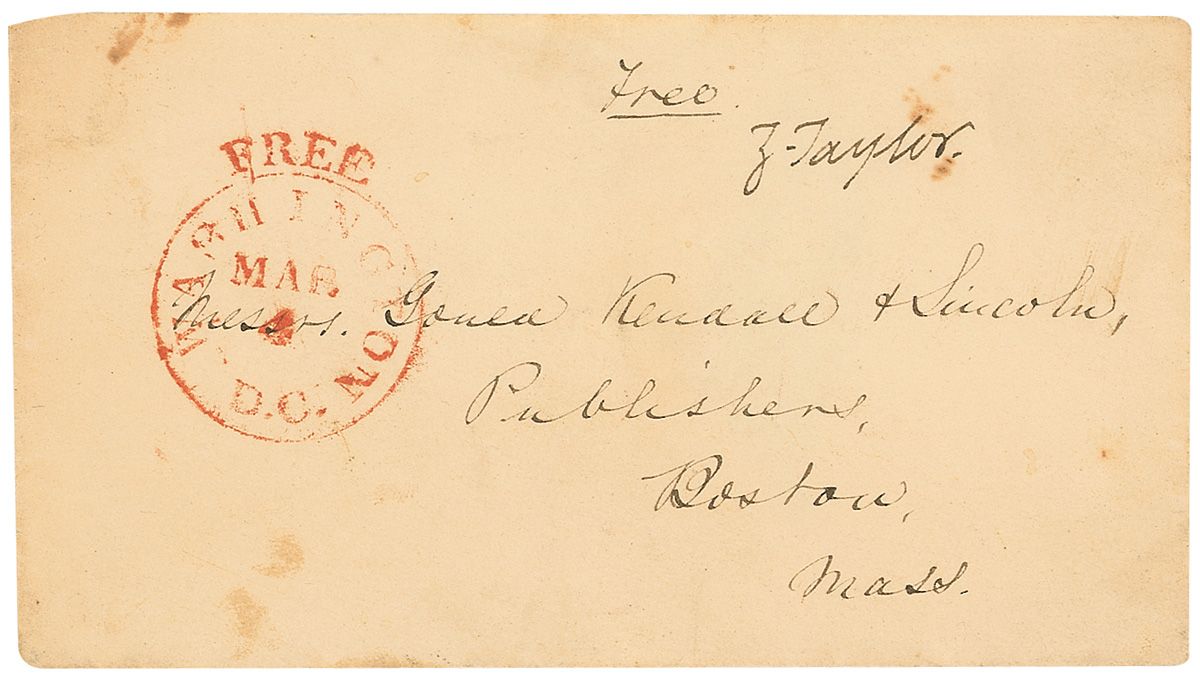 Free.
Z. Taylor.
FREE
WASHINGTON D.C.
MAR
4
Messrs. Gould Kendall & Lincoln,
Publishers,
Boston,
Mass.